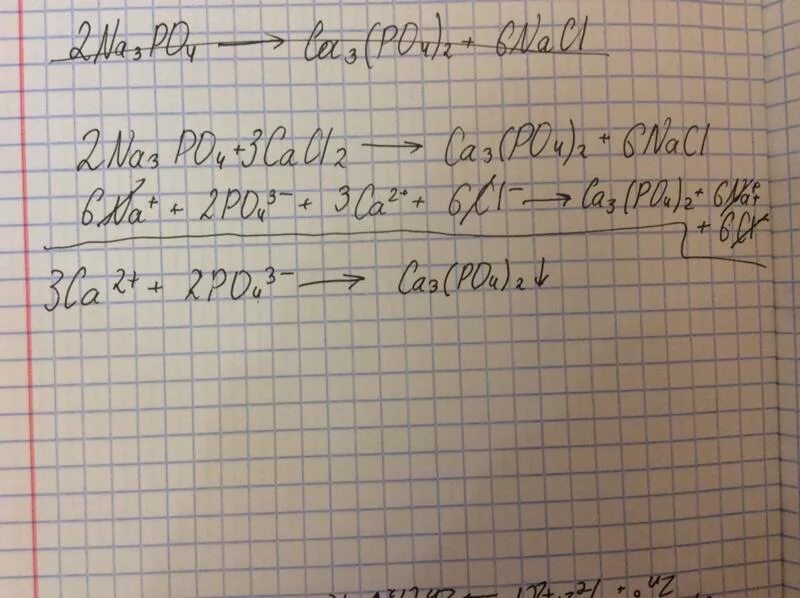 2Na₃PO₄ ⟶ Ca₃(PO₄)₂ + 6NaCl
2Na₃PO₄+3CaCl₂ ⟶ Ca₃(PO₄)₂ + 6NaCl
6Na⁺ + 2PO₄³⁻ + 3Ca²⁺ + 6Cl⁻ ⟶ Ca₃(PO₄)₂ + 6Na⁺
+ 6Cl⁻
3Ca²⁺ + 2PO₄³⁻ ⟶ Ca₃(PO₄)₂↓